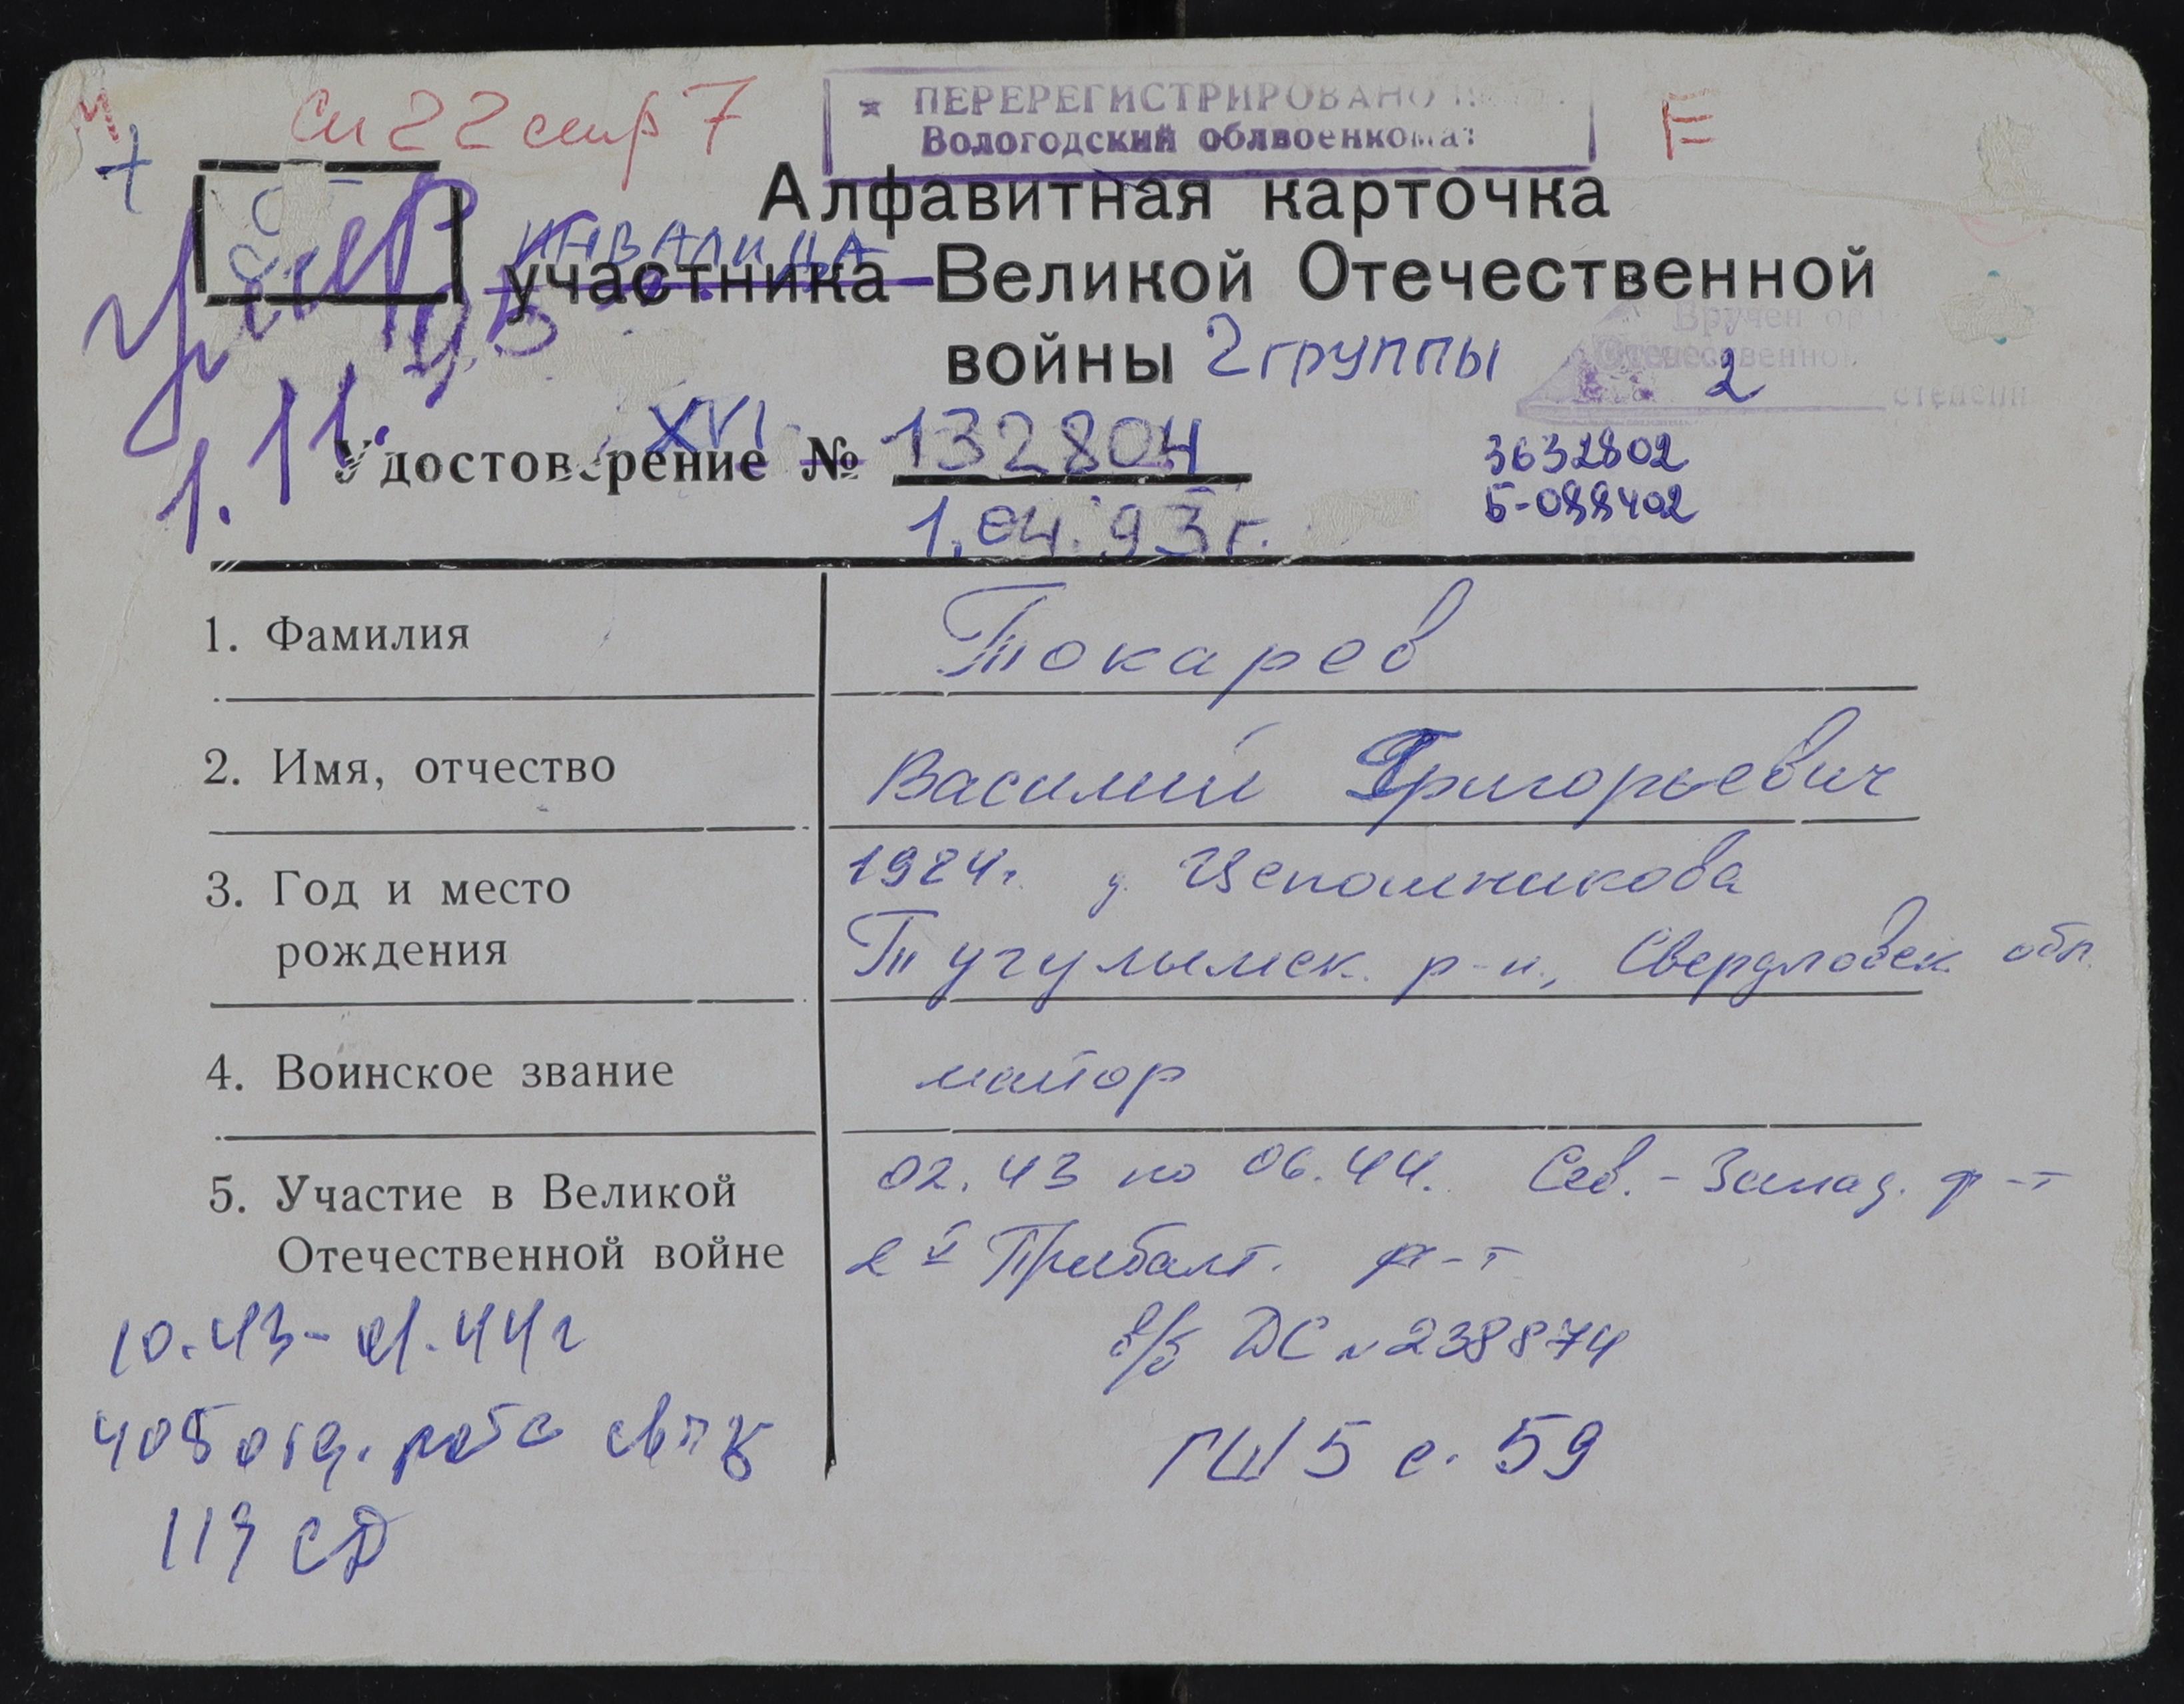 Сп 22 стр 7
ПЕРЕРЕГИСТРИРОВАНО
Вологодский облвоенкомат
Е
Алфавитная карточка
ИНВАЛИДА
участника Великой Отечественной
войны 2 группы
Вручен
Отечественной
2
степени
умер
1.11.95
Удостоверение XVI № 132804
3632802
Б-088402
1.04.93 г.
1. Фамилия Токарев
2. Имя, отчество Василий Григорьевич
3. Год и место рождения
1924 г. д.
Тугулымск. р-н, Свердловск. обл.
4. Воинское звание майор
5. Участие в Великой Отечественной войне
02.43 по 06.44. Сев.-Запад. ф-т
2й Прибалт. ф-т
в/б ДС № 238874
ГШ 5 с. 59
10.43-01.44 г
405 отд. рота связи
119 СД